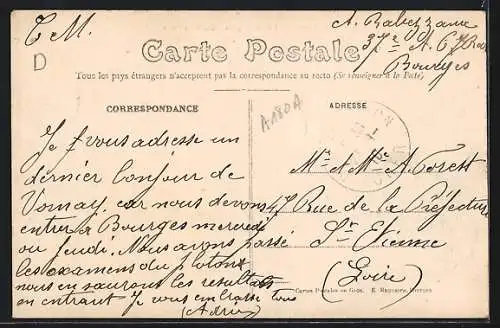 F. M.
A. Rabezzane
37e R. A. 67e
Bourges
D
Carte Postale
Tous les pays étrangers n'acceptent pas la correspondance au recto (Se renseigner à la Poste)
CORRESPONDANCE
ADRESSE
A180A
Je vous adresse un
dernier bonjour de
Vornay, car nous devons
entrer à Bourges mercredi
ou jeudi. Nous avons passé
les examens du peloton
nous en saurons les resultats
en entrant Je vous embrasse tous
(Adrien)
Mr et Mme A. Forest
47 Rue de la Préfecture
St Etienne
(Loire)
Cartes Postales en Gros. E.